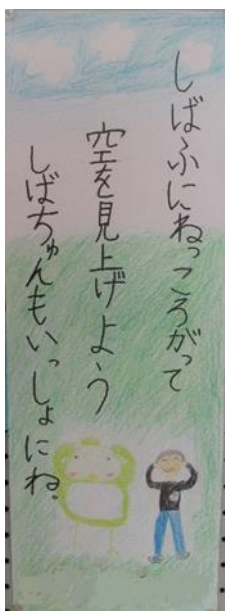 しばふにねっころがって
空を見上げよう
しばちゅんもいっしょにね。